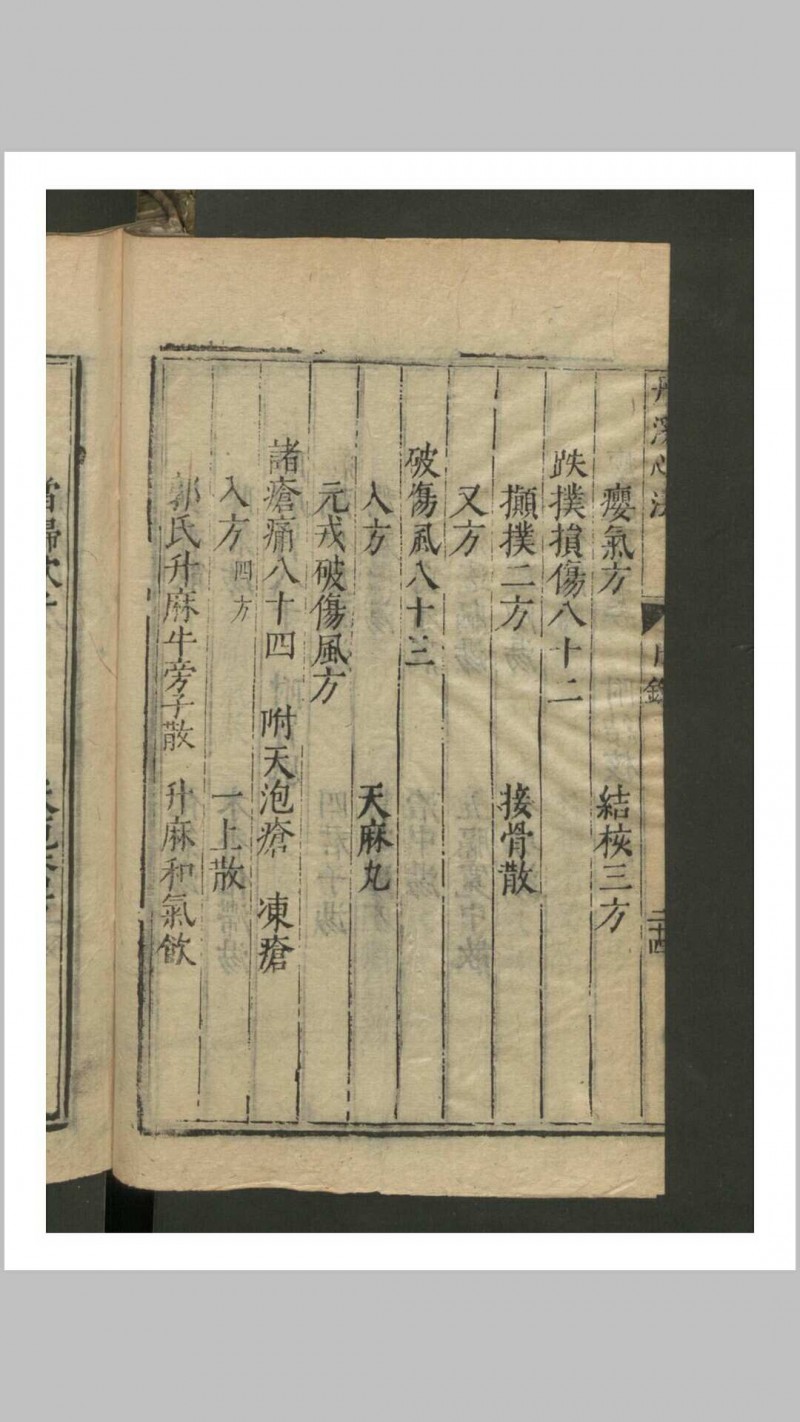 丹溪心法 目錄 二十四
癭氣方 結核三方
跌撲損傷八十二
攧撲二方 接骨散
又方
破傷風八十三
入方 天麻丸
元戎破傷風方
諸瘡痛八十四 附天泡瘡 凍瘡
入方四方 一上散
郭氏升麻牛旁子散 升麻和氣飲
當歸飲子